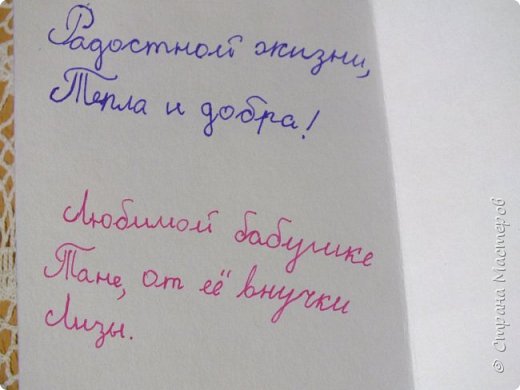 Радостной жизни,
Тепла и добра!
Любимой бабушке
Тане, от её внучки
Лизы.
© Страна Мастеров